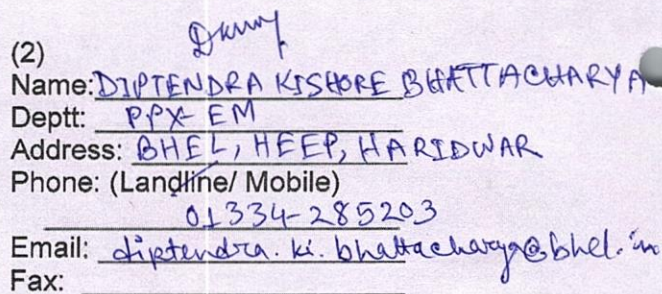 (2)
Name: DIPTENDRA KISHORE BHATTACHARYA
Deptt: PPX-EM
Address: BHEL, HEEP, HARIDWAR
Phone: (Landline/ Mobile)
01334-285203
Email: diptendra.ki.bhattacharya@bhel.in
Fax: